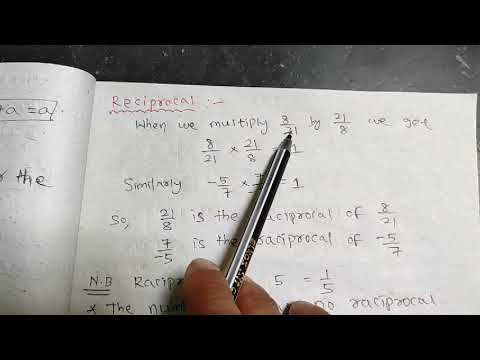 +a = a].
r the
Reciprocal :-
When we multiply 8/21 by 21/8 we get
8/21 × 21/8 = 1
Similarly -5/7 × 7/ = 1
So, 21/8 is the reciprocal of 8/21
7/-5 is the raciprocal of -5/7
N.B Racipr 5 = 1/5
* The num no raciprocal